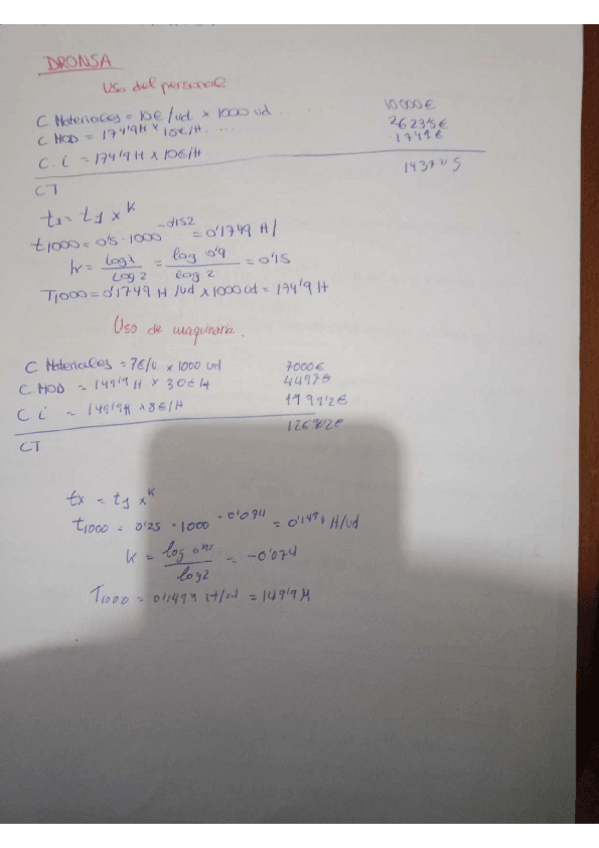 DRONSA
Uso del personal
C. Materiales = 10€/ud x 1000 ud 10000€
C MOD = 174'9H x 10€/H. 2623'5€
C. i = 174'9 H x 10€/H. 1749€
CT
tx = t1 x^K
t1000 = 0'5 · 1000^-0'152 = 0'1749 H/
= log 0'9 / log 2 = 0'15
T1000 = 0'1749 H /ud x 1000 ud = 174'9 H
Uso de maquinaria.
C Materiales = 7€/u x 1000 ud 7000€
C. MOD = 149'9 H x 30€/H 4497€
C i = 149'9H x 8€/H 1199'2€
CT
tx = t1 x^K
t1000 = 0'25 · 1000 = H/ud
K = log / log 2 = -0'074
T1000 = 0'1499 H/ud = 149'9 H